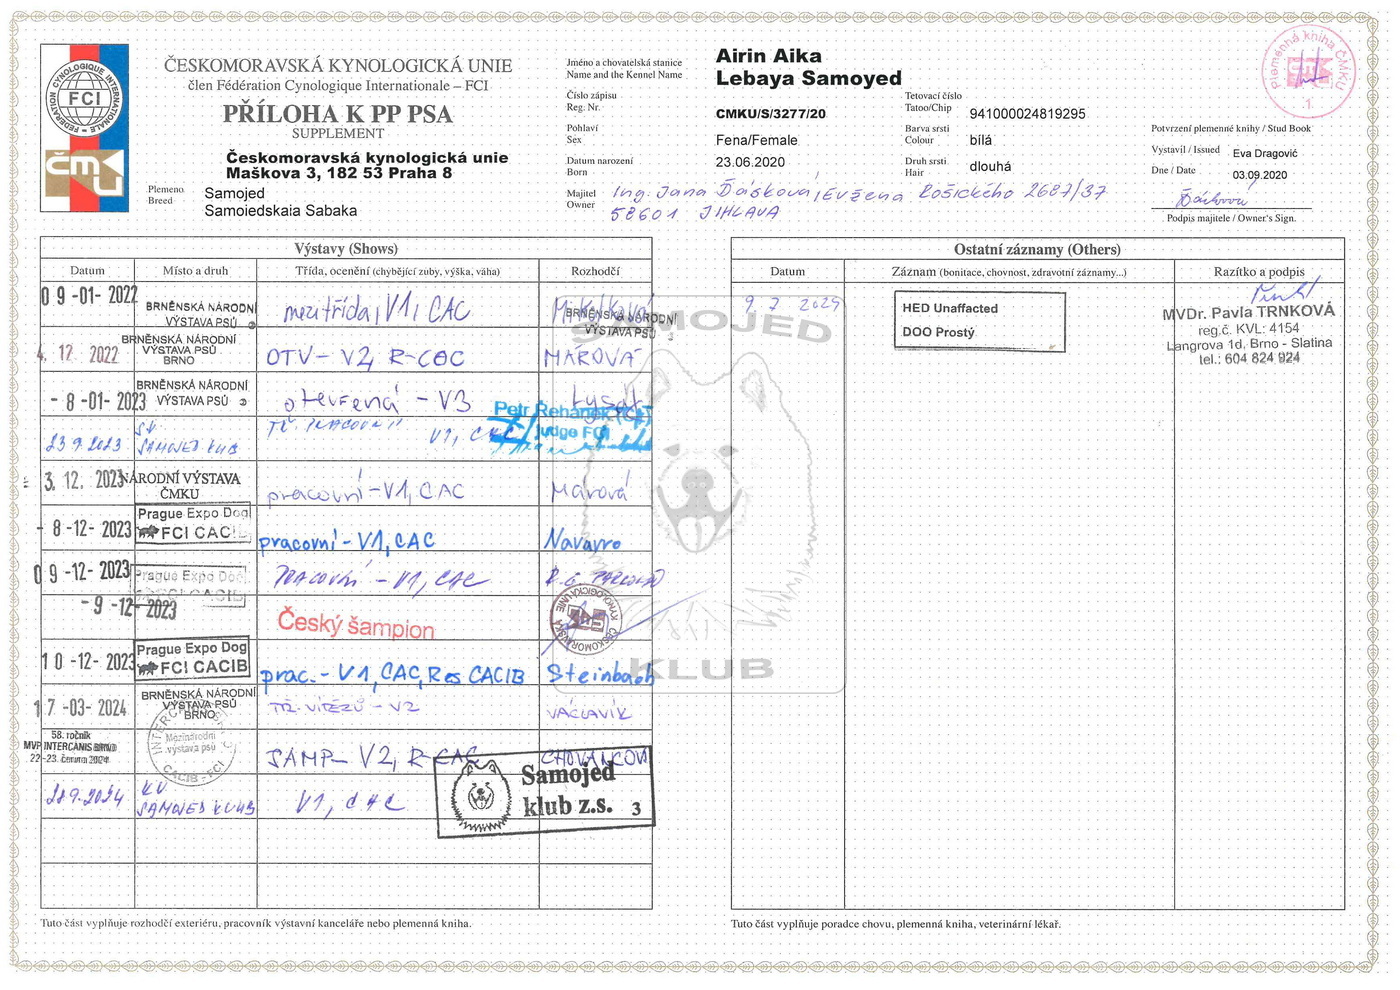 FEDERATION CYNOLOGIQUE INTERNATIONALE
FCI
čmku
ČESKOMORAVSKÁ KYNOLOGICKÁ UNIE
člen Fédération Cynologique Internationale – FCI
PŘÍLOHA K PP PSA
SUPPLEMENT
Českomoravská kynologická unie
Maškova 3, 182 53 Praha 8
Plemeno
Breed
Samojed
Samoiedskaia Sabaka
Jméno a chovatelská stanice
Name and the Kennel Name
Airin Aika
Lebaya Samoyed
Číslo zápisu
Reg. Nr.
CMKU/S/3277/20
Tetovací číslo
Tatoo/Chip
941000024819295
Pohlaví
Sex
Fena/Female
Barva srsti
Colour
bílá
Datum narození
Born
23.06.2020
Druh srsti
Hair
dlouhá
Majitel
Owner
Ing. Jana Ďásková, Evžena Rošického 2687/37
58601 JIHLAVA
Plemenná kniha ČMKU
1
Potvrzení plemenné knihy / Stud Book
Vystavil / Issued
Eva Dragović
Dne / Date
03.09.2020
Podpis majitele / Owner's Sign.
Výstavy (Shows)
Datum
Místo a druh
Třída, ocenění (chybějící zuby, výška, váha)
Rozhodčí
09-01-2022
BRNĚNSKÁ NÁRODNÍ
VÝSTAVA PSŮ
mezitřída, V1, CAC
BRNĚNSKÁ NÁRODNÍ
VÝSTAVA PSŮ
4. 12. 2022
BRNĚNSKÁ NÁRODNÍ
VÝSTAVA PSŮ
BRNO
OTV - V2, R-CAC
MÁROVÁ
- 8 -01- 2023
BRNĚNSKÁ NÁRODNÍ
VÝSTAVA PSŮ
otevřená - V3
Petr Řehánek (CZ)
Judge FCI
23.9.2023
SV
SAMOJED KLUB
TŘ. PRACOVNÍ V1, CAC
3. 12. 2023
NÁRODNÍ VÝSTAVA
ČMKU
pracovní - V1, CAC
Márová
- 8 -12- 2023
Prague Expo Dog
FCI CACIB
pracovní - V1, CAC
Navarro
09-12-2023
Prague Expo Dog
FCI CACIB
PRACOVNÍ - V1, CAC
- 9 -12- 2023
Český šampion
ČESKOMORAVSKÁ KYNOLOGICKÁ UNIE
10-12-2023
Prague Expo Dog
FCI CACIB
prac. - V1, CAC, Res CACIB
Steinbach
17-03-2024
BRNĚNSKÁ NÁRODNÍ
VÝSTAVA PSŮ
BRNO
TŘ. VÍTĚZŮ - V2
VÁCLAVÍK
58. ročník
MVP INTERCANIS BRNO
22-23. června 2024
Mezinárodní
výstava psů
CACIB - FCI
ŠAMP - V2, R-CAC
28.9.2024
KV
SAMOJED KLUB
V1, CAC
Samojed
klub z.s. 3
Tuto část vyplňuje rozhodčí exteriéru, pracovník výstavní kanceláře nebo plemenná kniha.
SAMOJED
KLUB
Ostatní záznamy (Others)
Datum
Záznam (bonitace, chovnost, zdravotní záznamy...)
Razítko a podpis
9. 7. 2024
HED Unaffacted
DOO Prostý
MVDr. Pavla TRNKOVÁ
reg.č. KVL: 4154
Langrova 1d, Brno - Slatina
tel.: 604 824 924
Tuto část vyplňuje poradce chovu, plemenná kniha, veterinární lékař.